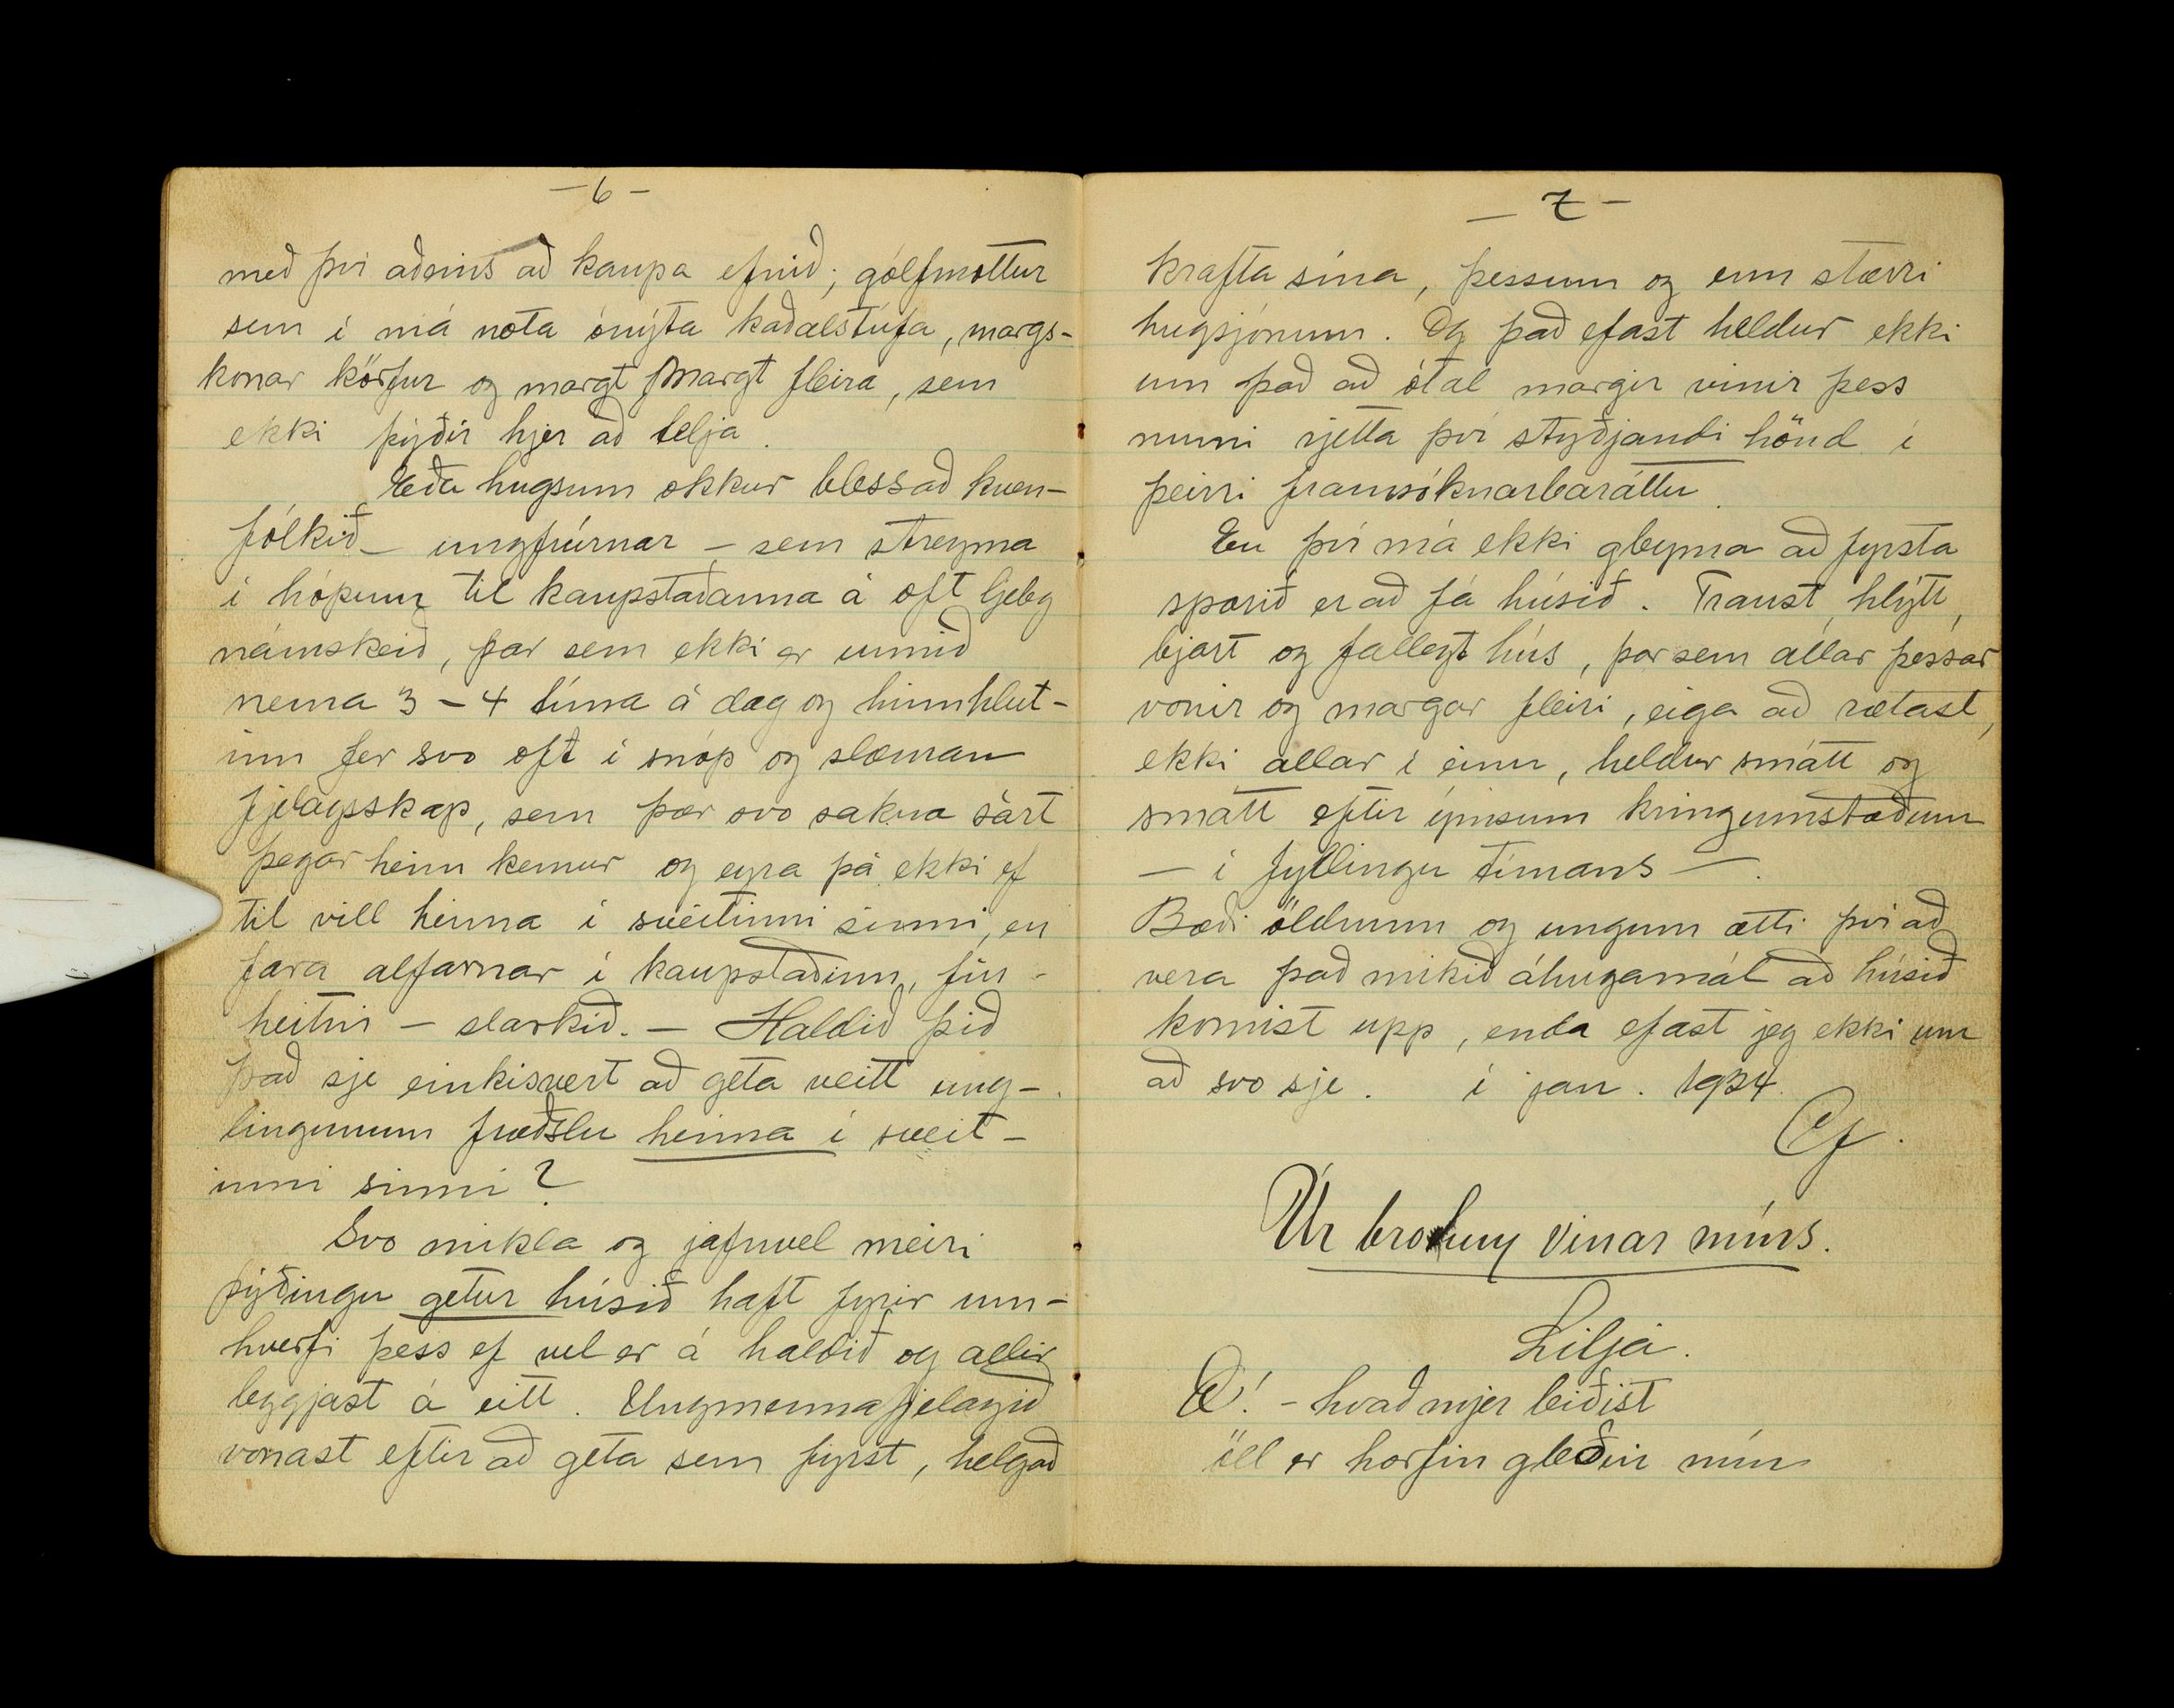 - 6 -
með því aðeins að kaupa efnið; gólfmottur
sem í má nota ónýta kaðalstúfa, margs-
konar körfur og margt margt fleira, sem
ekki þýðir hjer að telja.
Eða hugsum okkur blessað kven-
fólkið - ungfrúrnar - sem streyma
í hópum til kaupstaðanna á oft ljeleg
námskeið, þar sem ekki er unnið
nema 3 - 4 tíma á dag og hinn hlut-
inn fer svo oft í snóp og slæman
fjelagsskap, sem þær svo sakna sárt
þegar heim kemur og eyra þá ekki ef
til vill heima í sveitinni sinni, en
fara alfarnar í kaupstaðinn, fín-
heitin - slarkið. - Haldið þið
það sje einkisvert að geta veitt ung-
lingunum fræðslu heima í sveit-
inni sinni?
Svo mikla og jafnvel meiri
þýðingu getur húsið haft fyrir um-
hverfi þess ef vel er á haldið og allir
leggjast á eitt. Ungmennafjelagið
vonast eftir að geta sem fyrst, helgað
- 7 -
krafta sína, þessum og enn stærri
hugsjónum. Og það efast heldur ekki
um það að ótal margir vinir þess
muni rjetta því styðjandi hönd í
þeirri framsóknarbaráttu.
En því má ekki gleyma að fyrsta
sporið er að fá húsið. Traust, hlýtt,
bjart og fallegt hús, þar sem allar þessar
vonir og margar fleiri, eiga að rætast,
ekki allar í einu, heldur smátt og
smátt eftir ýmsum kringumstæðum
- í fyllingu tímans -.
Bæði öldnum og ungum ætti því að
vera það mikið áhugamál að húsið
komist upp, enda efast jeg ekki um
að svo sje. í jan. 1934.
Ef.
Úr brotum vinar míns.
Lilja.
Ó! - hvað mjer leiðist
öll er horfin gleðin mín